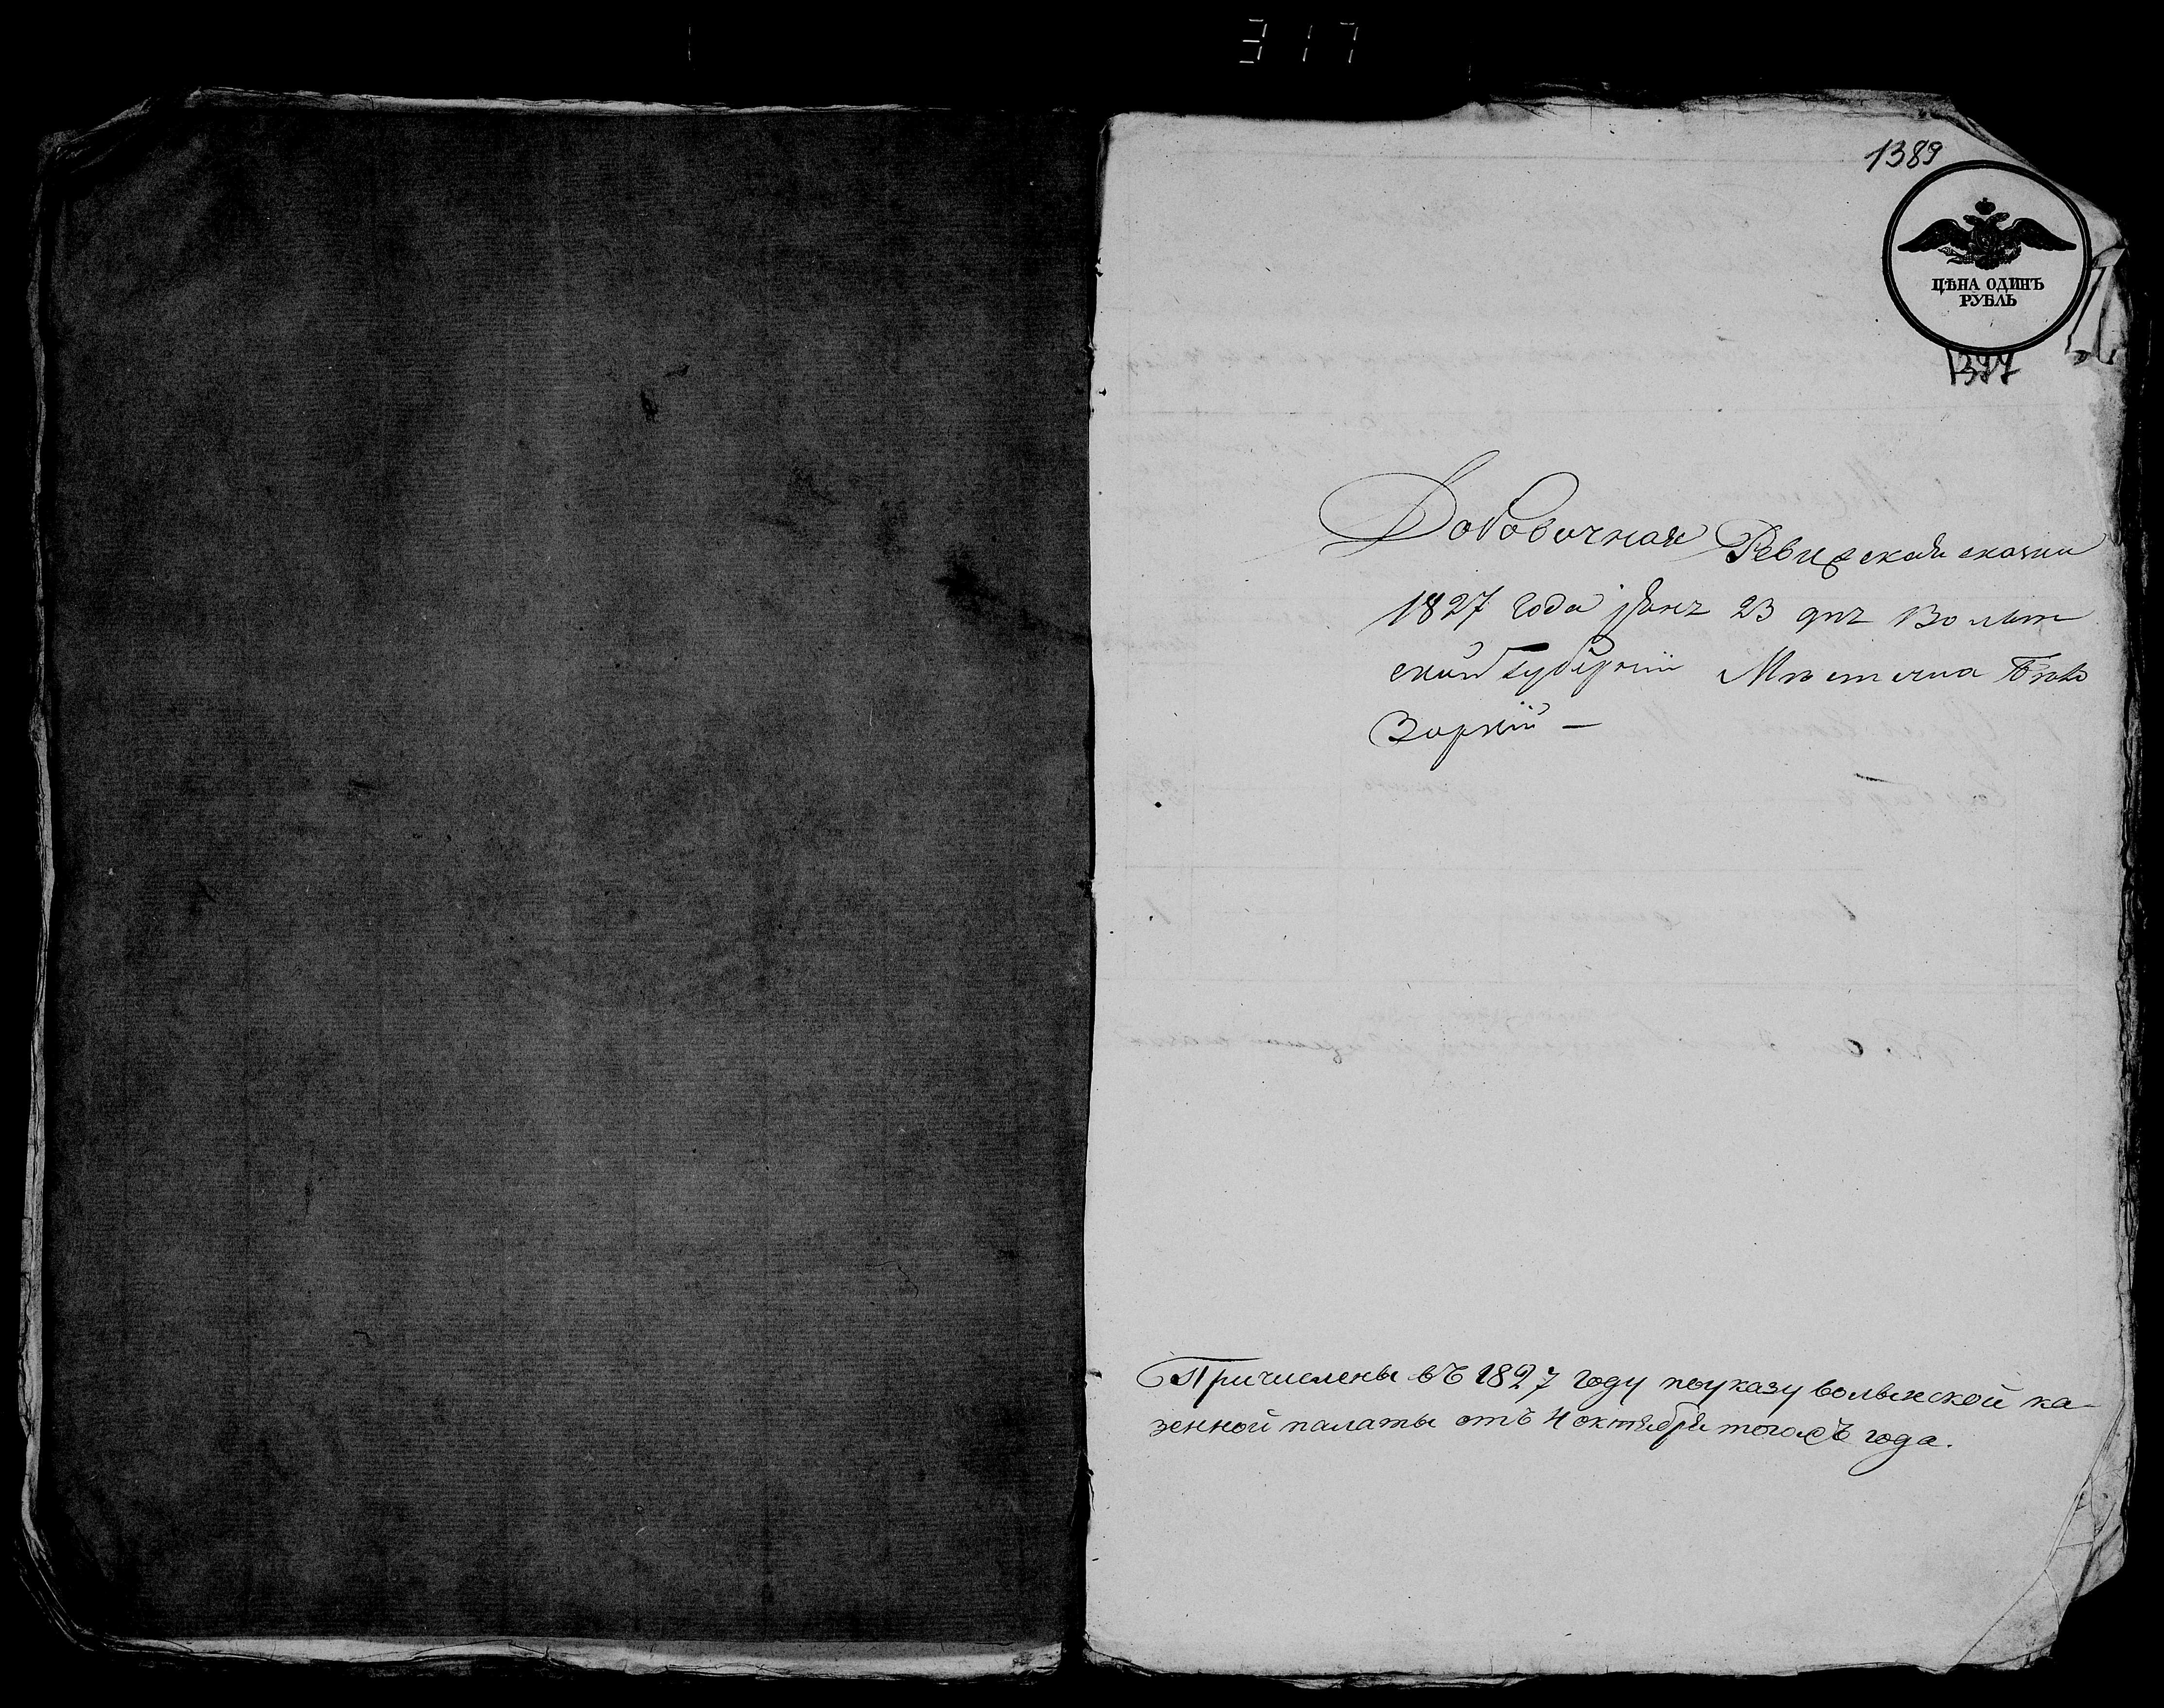 317
1389
ЦѢНА ОДИНЪ
РУБЛЬ
1397
Добовочная Ревизская сказка
1827 года 23 дня Волын
ской Губернiи Мѣстечка Бѣло
Зоркiи —
Причислены въ 1827 году поуказу волынской ка-
зенной палаты отъ 4 октября тогожъ года.